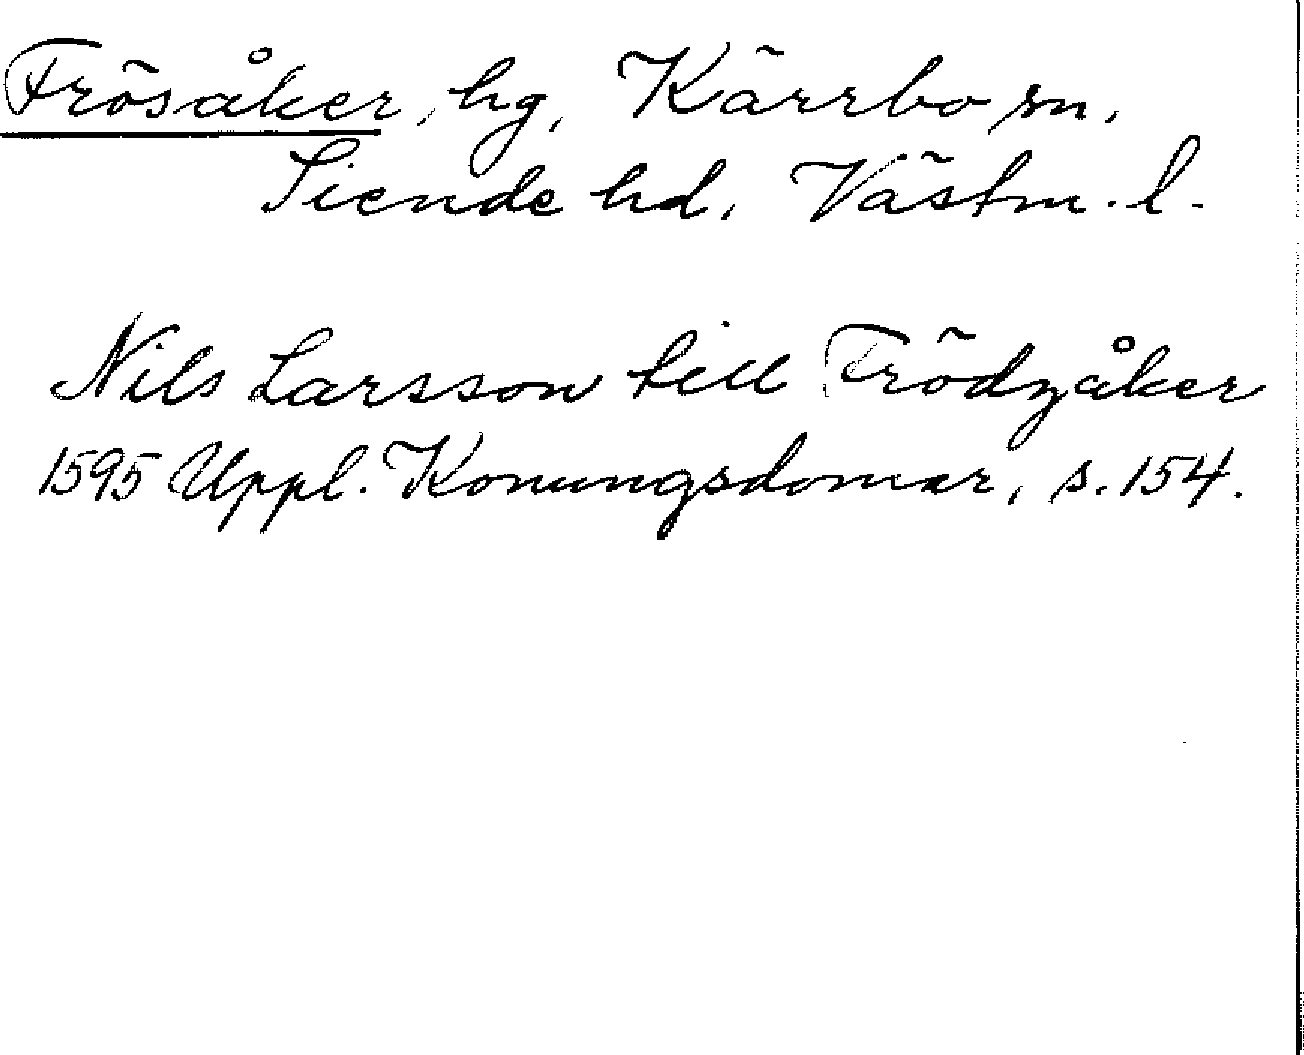 Frösåker, hg, Kärrbo sn,
Siende hd, Västm. l.
Nils Larsson till Frödzåker
1595 Uppl. Konungsdomar, s. 154.